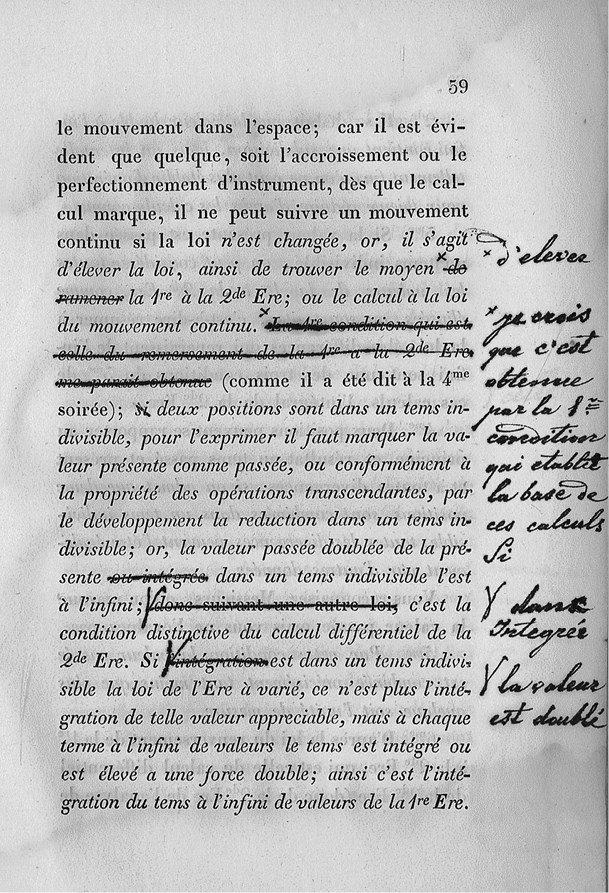 59
le mouvement dans l'espace; car il est évi-
dent que quelque, soit l'accroissement ou le
perfectionnement d'instrument, dès que le cal-
cul marque, il ne peut suivre un mouvement
continu si la loi n'est changée, or, il s'agit
d'élever la loi, ainsi de trouver le moyen × de
ramener la 1re à la 2de Ere; ou le calcul à la loi
du mouvement continu. × La 1re condition qui est
celle du remersement de la 1re a la 2de Ere
me parait obtenue (comme il a été dit à la 4me
soirée); Si deux positions sont dans un tems in-
divisible, pour l'exprimer il faut marquer la va-
leur présente comme passée, ou conformément à
la propriété des opérations transcendantes, par
le développement la reduction dans un tems in-
divisible; or, la valeur passée doublée de la pré-
sente ou intégrée dans un tems indivisible l'est
à l'infini; donc suivant une autre loi, c'est la
condition distinctive du calcul différentiel de la
2de Ere. Si intégration est dans un tems indivi-
sible la loi de l'Ere à varié, ce n'est plus l'inté-
gration de telle valeur appreciable, mais à chaque
terme à l'infini de valeurs le tems est intégré ou
est élevé a une force double; ainsi c'est l'inté-
gration du tems à l'infini de valeurs de la 1re Ere.
× d'élever
× je crois
que c'est
obtenue
par la 1re
condition
qui etablit
la base de
ces calculs
Si
dans
Integrée
la valeur
est doublé